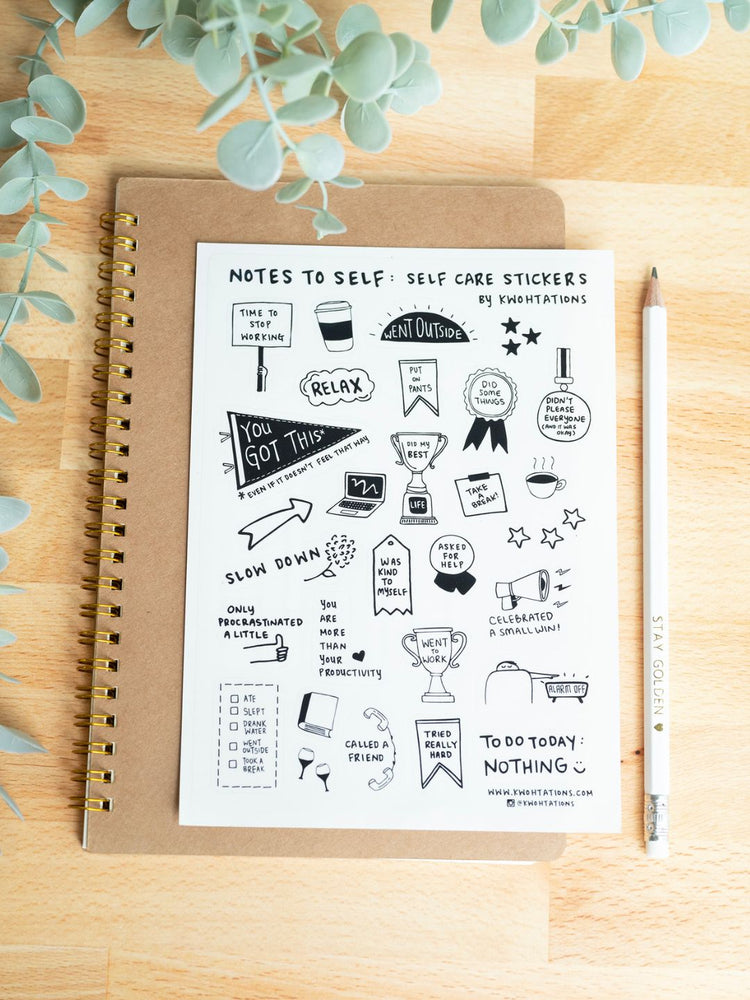 NOTES TO SELF: SELF CARE STICKERS
BY KWOHTATIONS
TIME TO
STOP
WORKING
WENT OUTSIDE
RELAX
PUT
ON
PANTS
DID
SOME
THINGS
DIDN'T
PLEASE
EVERYONE
(AND IT WAS
OKAY)
YOU
GOT THIS*
*EVEN IF IT DOESN'T FEEL THAT WAY
DID MY
BEST
LIFE
TAKE
A
BREAK!
SLOW DOWN
I WAS
KIND
TO
MYSELF
ASKED
FOR
HELP
CELEBRATED
A SMALL WIN!
ONLY
PROCRASTINATED
A LITTLE
YOU
ARE
MORE
THAN
YOUR
PRODUCTIVITY
WENT
TO
WORK
ALARM OFF
ATE
SLEPT
DRANK
WATER
WENT
OUTSIDE
TOOK A
BREAK
CALLED A
FRIEND
TRIED
REALLY
HARD
TO DO TODAY:
NOTHING
WWW.KWOHTATIONS.COM
@KWOHTATIONS
STAY GOLDEN